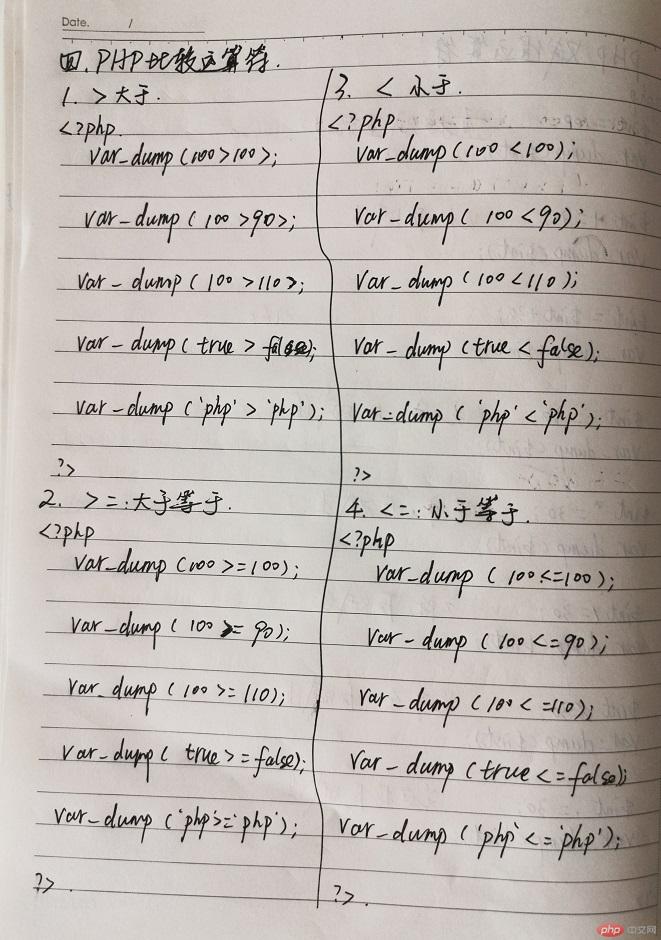 Date. /
四.PHP比较运算符.
1. >大于.
<?php.
var_dump (100>100>;
var_dump ( 100 >90>;
var_dump ( 100 >110>;
var_dump ( true > false);
var_dump ('php' > 'php');
?>
2. >=:大于等于.
<?php
var_dump (100 >=100);
var_dump ( 100 >= 90);
var_dump (100 >=110);
var_dump ( true >=false);
var_dump ('php'>='php');
?>.
3. < 小于.
<?php
var_dump (100 <100);
var_dump ( 100 <90);
var_dump (100 <110);
var_dump (true < false);
var_dump ('php' < 'php');
?>
4. <=:小于等于.
<?php
var_dump ( 100 <=100);
var_dump (100 <=90);
var_dump (100 < =110);
var_dump (true <=false);
var_dump ('php' <='php');
?>.
php 中文网